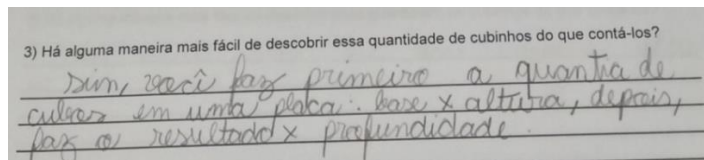 3) Há alguma maneira mais fácil de descobrir essa quantidade de cubinhos do que contá-los?
Sim, você faz primeiro a quantia de
cubos em uma placa: base x altura, depois,
faz o resultado x profundidade.